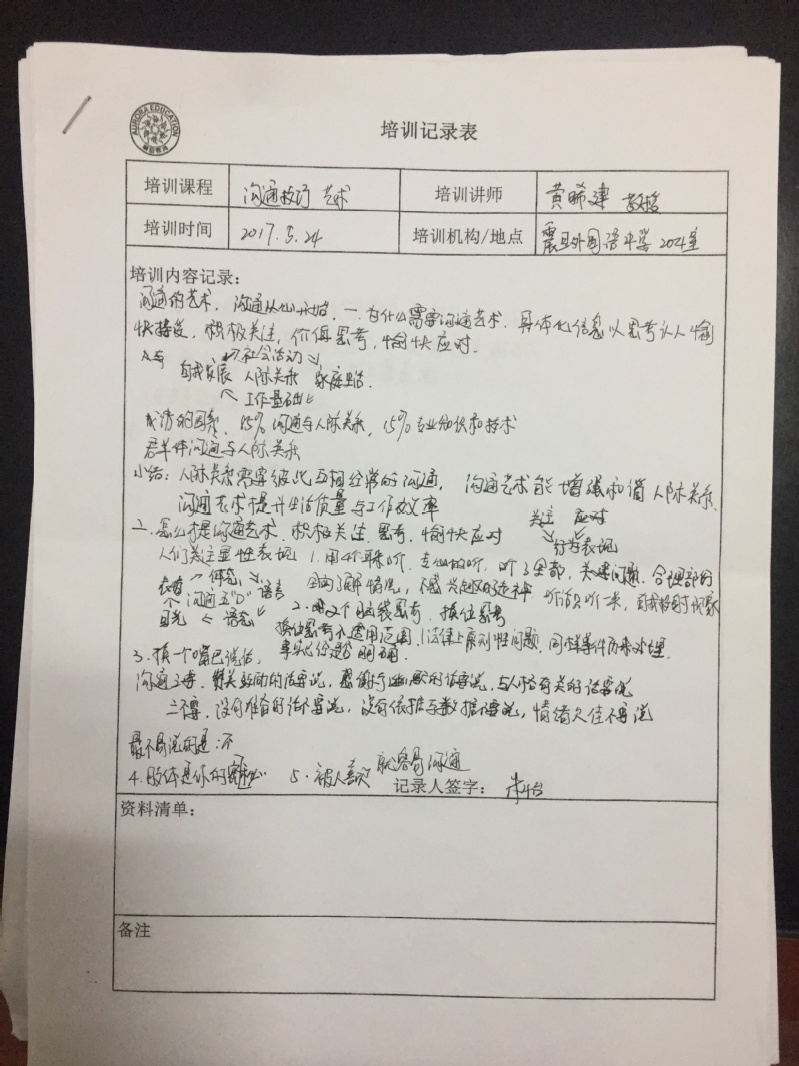 AURORA EDUCATION
培训记录表
培训课程 沟通技巧 艺术 培训讲师 黄晞建 教授
培训时间 2017.5.24 培训机构/地点 震旦外国语中学 204室
培训内容记录:
沟通的艺术, 沟通从心开始, 一.为什么需要沟通艺术, 具体化信息以思考认人愉
快接受, 积极关注, 价值思考, 愉快应对.
社会活动
自我发展 人际关系 家庭生活.
工作基础
成功的因素, 85% 沟通与人际关系, 15% 专业知识和技术
沟通与人际关系
小结: 人际关系需要彼此互相经常的沟通, 沟通艺术能增强和谐人际关系.
沟通艺术提升生活质量与工作效率
关注 应对
二.怎么才是沟通艺术, 积极关注, 思考, 愉快应对 行为表现
人们关注显性表现 1.用4个耳朵听, 听了全部, 关键问题, 合理部分
衣着 体态 语言 全面了解情况, 不感兴趣的
个 沟通五"D" 2.用2个脑袋思考, 换位思考
目光 语态
换位思考不适用范围, 1法律上原则性问题, 同样事件历来处理
3.换一个嘴巴说话, 事实
沟通3要, 赞美鼓励的话要说, 感谢与幽默的话要说, 与人格有关的话要说
三不要, 没有准备的话不要说, 没有依据与数据不要说, 情绪欠佳不要说
最不易说的是:不
4.肢体是你的 5.被人喜欢就容易沟通
记录人签字:
资料清单:
备注